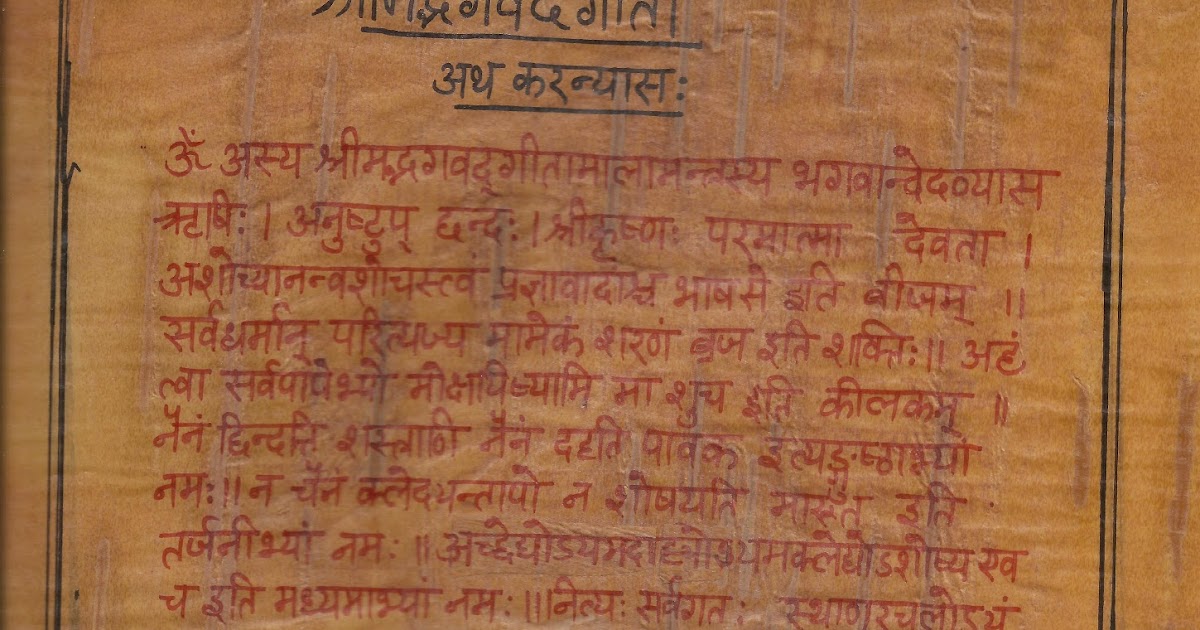 श्रीमद्भगवद्गीता
अथ करन्यासः
ॐ अस्य श्रीमद्भगवद्गीतामालामन्त्रस्य भगवान्वेदव्यास
ऋषिः। अनुष्टुप् छन्दः। श्रीकृष्णः परमात्मा देवता।
अशोच्यानन्वशोचस्त्वं प्रज्ञावादांश्च भाषसे इति बीजम् ॥
सर्वधर्मान् परित्यज्य मामेकं शरणं व्रज इति शक्तिः॥ अहं
त्वा सर्वपापेभ्यो मोक्षयिष्यामि मा शुच इति कीलकम् ॥
नैनं छिन्दन्ति शस्त्राणि नैनं दहति पावक इत्यङ्गुष्ठाभ्यां
नमः॥ न चैनं क्लेदयन्तापो न शोषयति मारुत इति
तर्जनीभ्यां नमः ॥ अच्छेद्योऽयमदाह्योऽयमक्लेद्योऽशोष्य एव
च इति मध्यमाभ्यां नमः॥ नित्यः सर्वगतः स्थाणुरचलोऽयं